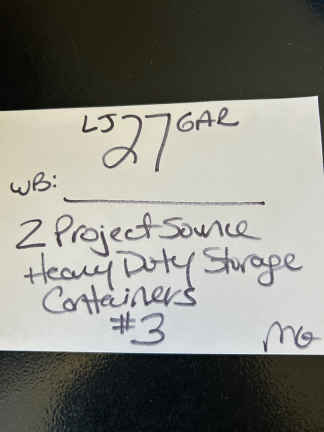 LJ 27 GAR
WB:
2 Project Source
Heavy Duty Storage
Containers
#3
MG